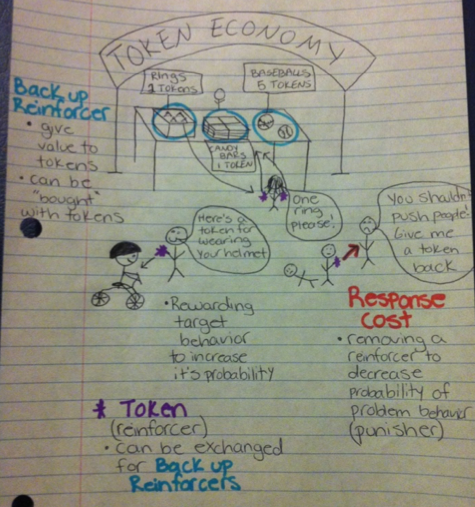 TOKEN ECONOMY
Rings
2 Tokens
BASEBALLS
5 TOKENS
CANDY
BARS
1 TOKEN
Back up
Reinforcer
• give
value to
tokens
• can be
"bought"
with tokens
One
ring
please!
Here's a
token for
wearing
your helmet
You shouldn't
push people!
Give me
a token
back
• Rewarding
target
behavior
to increase
it's probability
Response
Cost
• removing a
reinforcer to
decrease
probability of
problem behavior
(punisher)
* Token
(reinforcer)
• can be exchanged
for Back up
Reinforcers